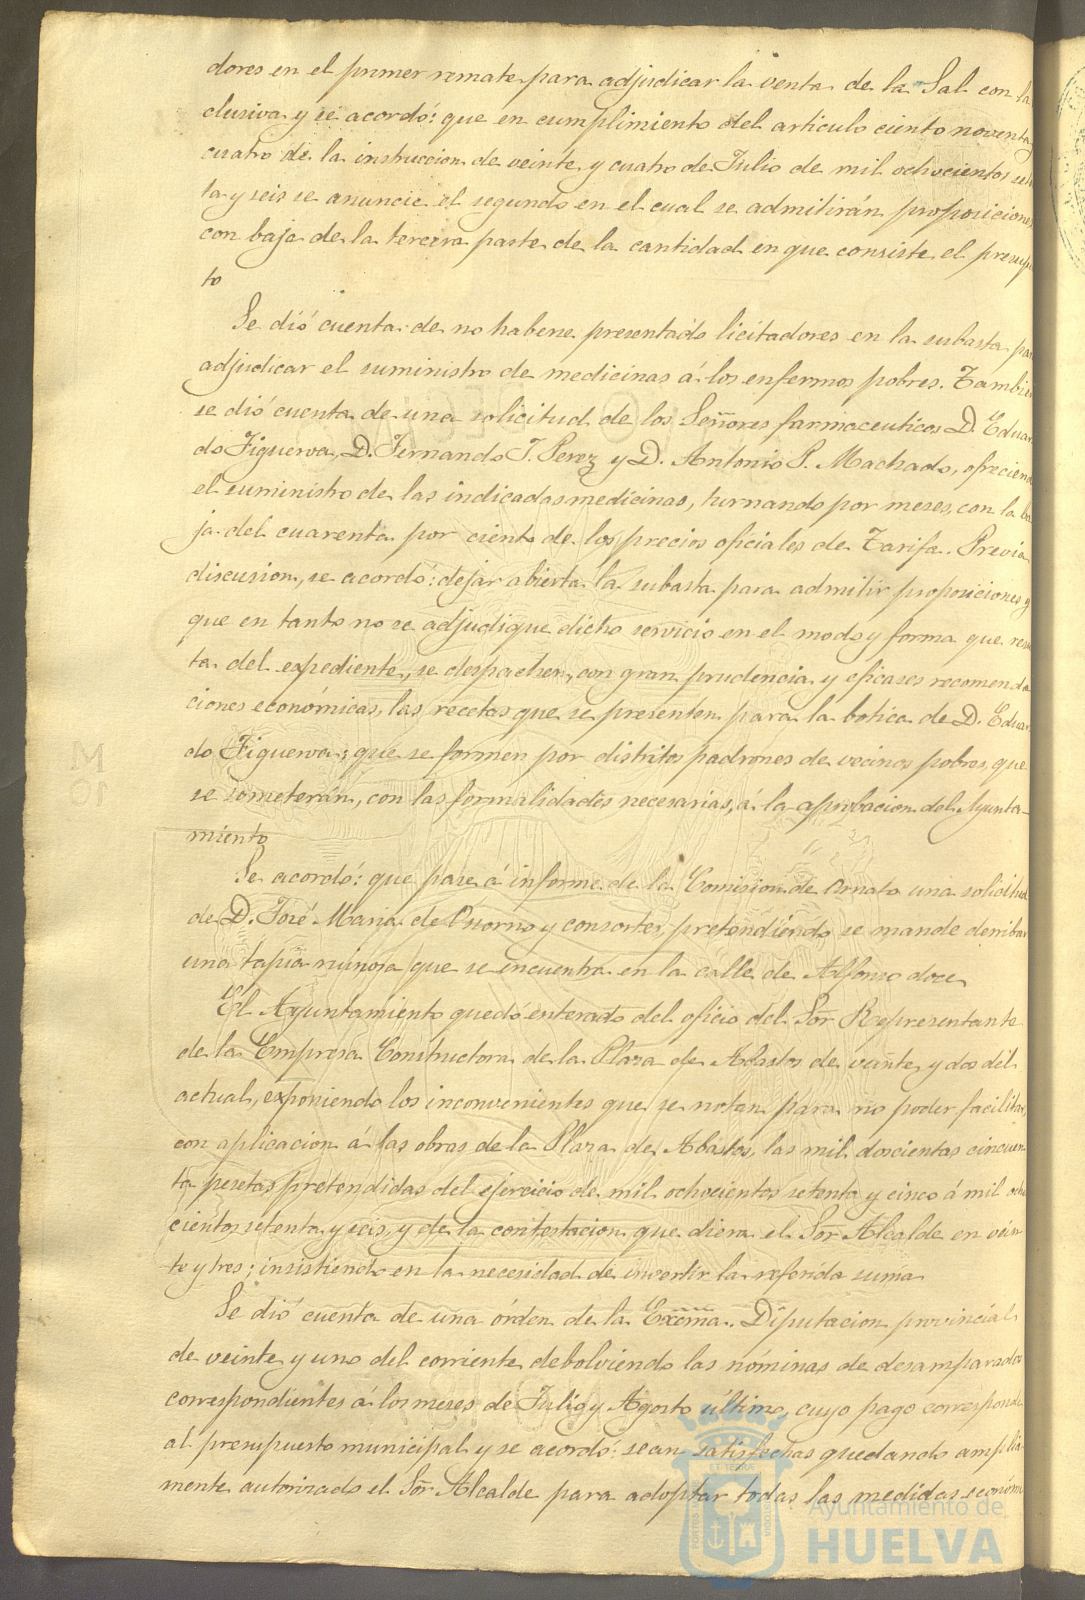 dores en el primer remate para adjudicar la venta de la Sal con la
clusiva y se acordó: que en cumplimiento del articulo ciento noventa y
cuatro de la instruccion de veinte y cuatro de Julio de mil ochocientos
ta y seis se anuncie el segundo en el cual se admitirán proposiciones
con baja de la tercera parte de la cantidad en que consiste el presupu
to
Se dió cuenta de no haberse presentado licitadores en la subasta para
adjudicar el suministro de medicinas á los enfermos pobres. Tambien
se dió cuenta de una solicitud de los Señores farmaceuticos D. Eduar
do Figueroa, D. Fernando J. Perez y D. António P. Machado, ofreciendo
el suministro de las indicadas medicinas, turnando por meses, con la ba
ja del cuarenta por ciento de los precios oficiales de Tarifa. Prévia
discusion, se acordó: dejar abierta la subasta para admitir proposiciones y
que en tanto no se adjudique dicho servicio en el modo y forma que resul
ta del expediente, se despachen, con gran prudencia y eficases recomenda
ciones económicas, las recetas que se presenten para la botica de D. Eduar
do Figueroa; que se formen por distritos padrones de vecinos pobres, que
se someterán, con las formalidades necesarias, á la aprobacion del Ayunta-
miento
Se acordó: que pase á informe de la Comision de Ornato una solicitud
de D. José Maria de Osorno y consortes, pretendiendo se mande derribar
una tapia ruinosa que se encuentra en la calle de Alfonso doce
El Ayuntamiento quedó enterado del oficio del Sor Representante
de la Empresa Constructora de la Plaza de Abastos de veinte y dos del
actual, exponiendo los inconvenientes que se notan para no poder facilitar,
con aplicacion á las obras de la Plaza de Abastos, las mil doscientas cincuen
ta pesetas pretendidas del ejercicio de mil ochocientos setenta y cinco á mil ocho
cientos setenta y seis, y de la contestacion que diera el Sor Alcalde en vein
te y tres; insistiendo en la necesidad de invertir la referida suma
Se dió cuenta de una órden de la Excma. Diputacion provincial
de veinte y uno del corriente debolviendo las nóminas de desamparados
correspondientes á los meses de Julio y Agosto último, cuyo pago corresponde
al presupuesto municipal y se acordó: sean satisfechas quedando amplia
mente autorizado el Sor Alcalde para adoptar todas las medidas económi
Ayuntamiento de
HUELVA